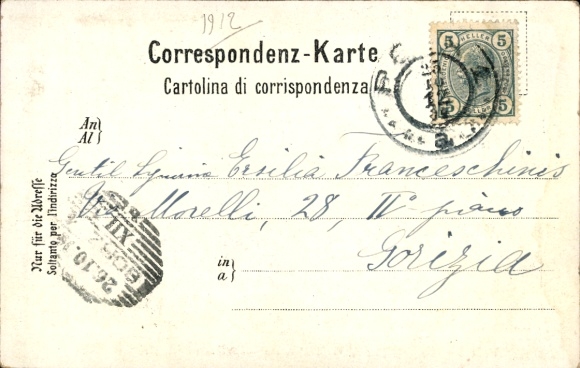 1912
Correspondenz-Karte
Cartolina di corrispondenza
5 HELLER 5
5 HELLER 5
An
Al
Gentil Signorina Ersilia Franceschinis
Via Morelli, 28, IIº piano
in
a
Gorizia
Nur für die Adresse
Soltanto per l'indirizzo
26.10.
XII